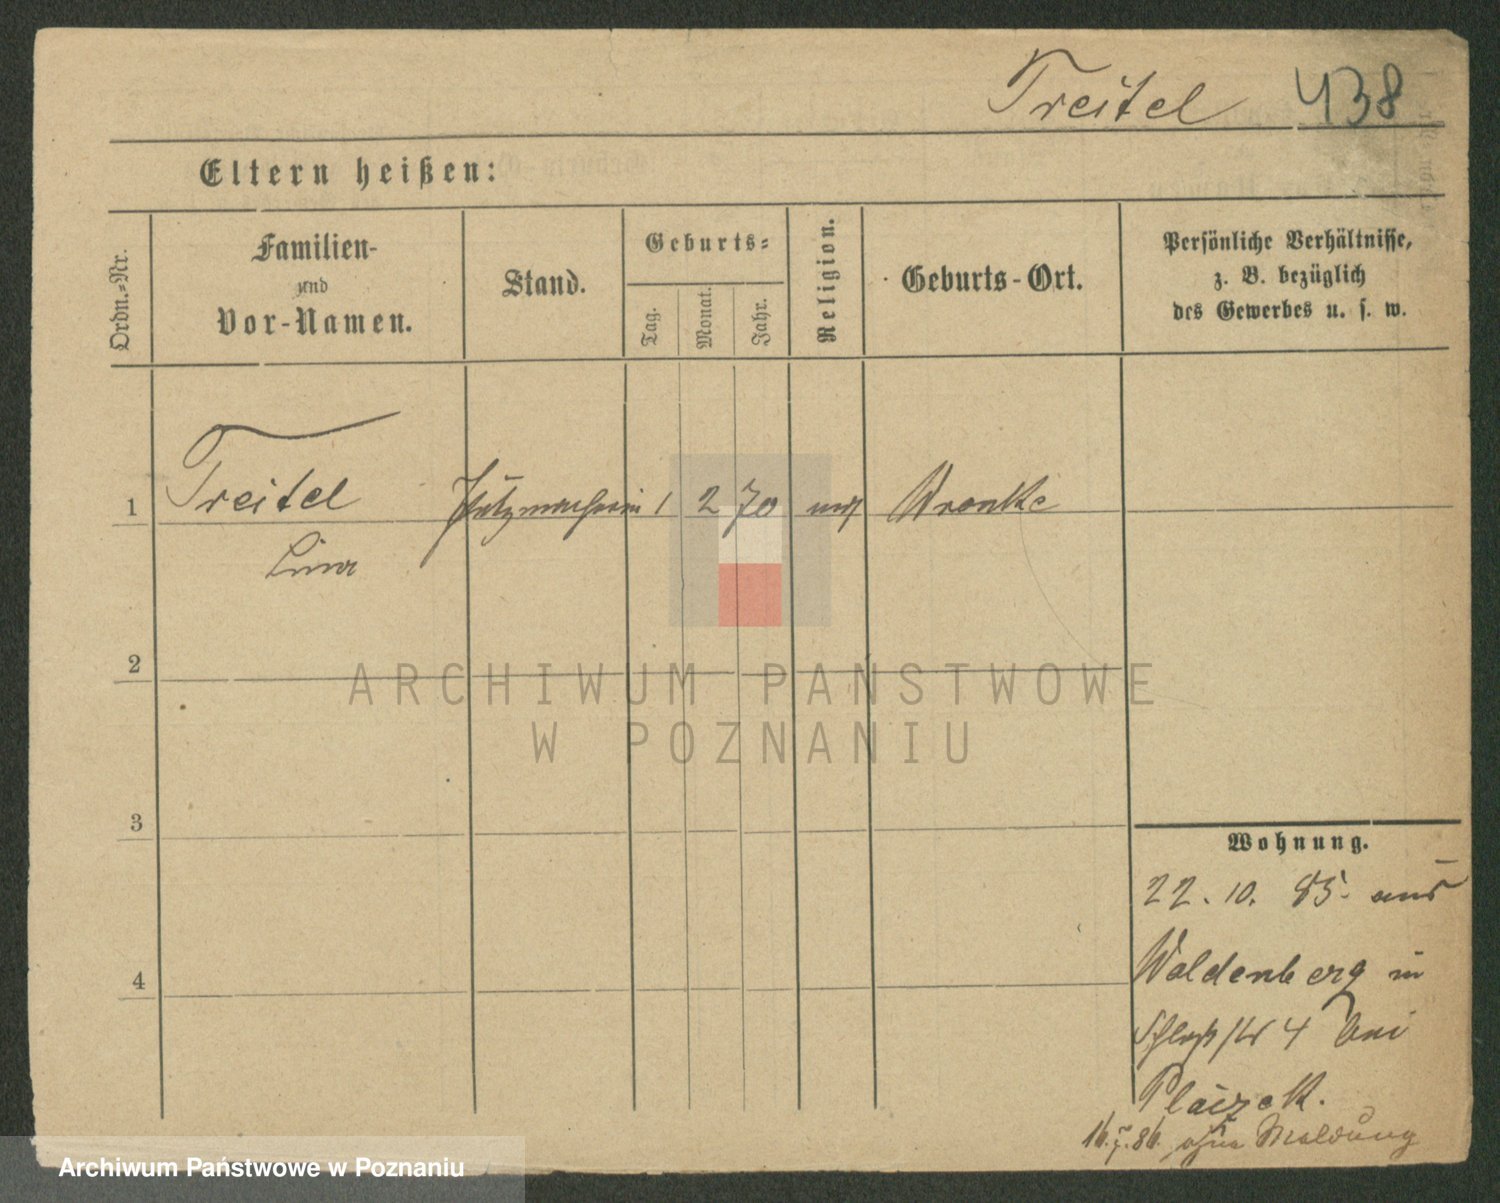 Treitel 438
Eltern heißen:
Ordn.-Nr.
Familien-
und
Vor-Namen.
Stand.
Geburts-
Tag.
Monat.
Jahr.
Religion.
Geburts-Ort.
Persönliche Verhältnisse,
z. B. bezüglich
des Gewerbes u. s. w.
1 Treitel Putzmacherin 1 2 70 mos Wronke
Lina
2
ARCHIWUM PAŃSTWOWE
W POZNANIU
3
Wohnung.
22. 10. 85. aus
Woldenberg in
Schloßstr 4 bei
Placzek.
16. 7. 86. ohne Meldung
4
Archiwum Państwowe w Poznaniu